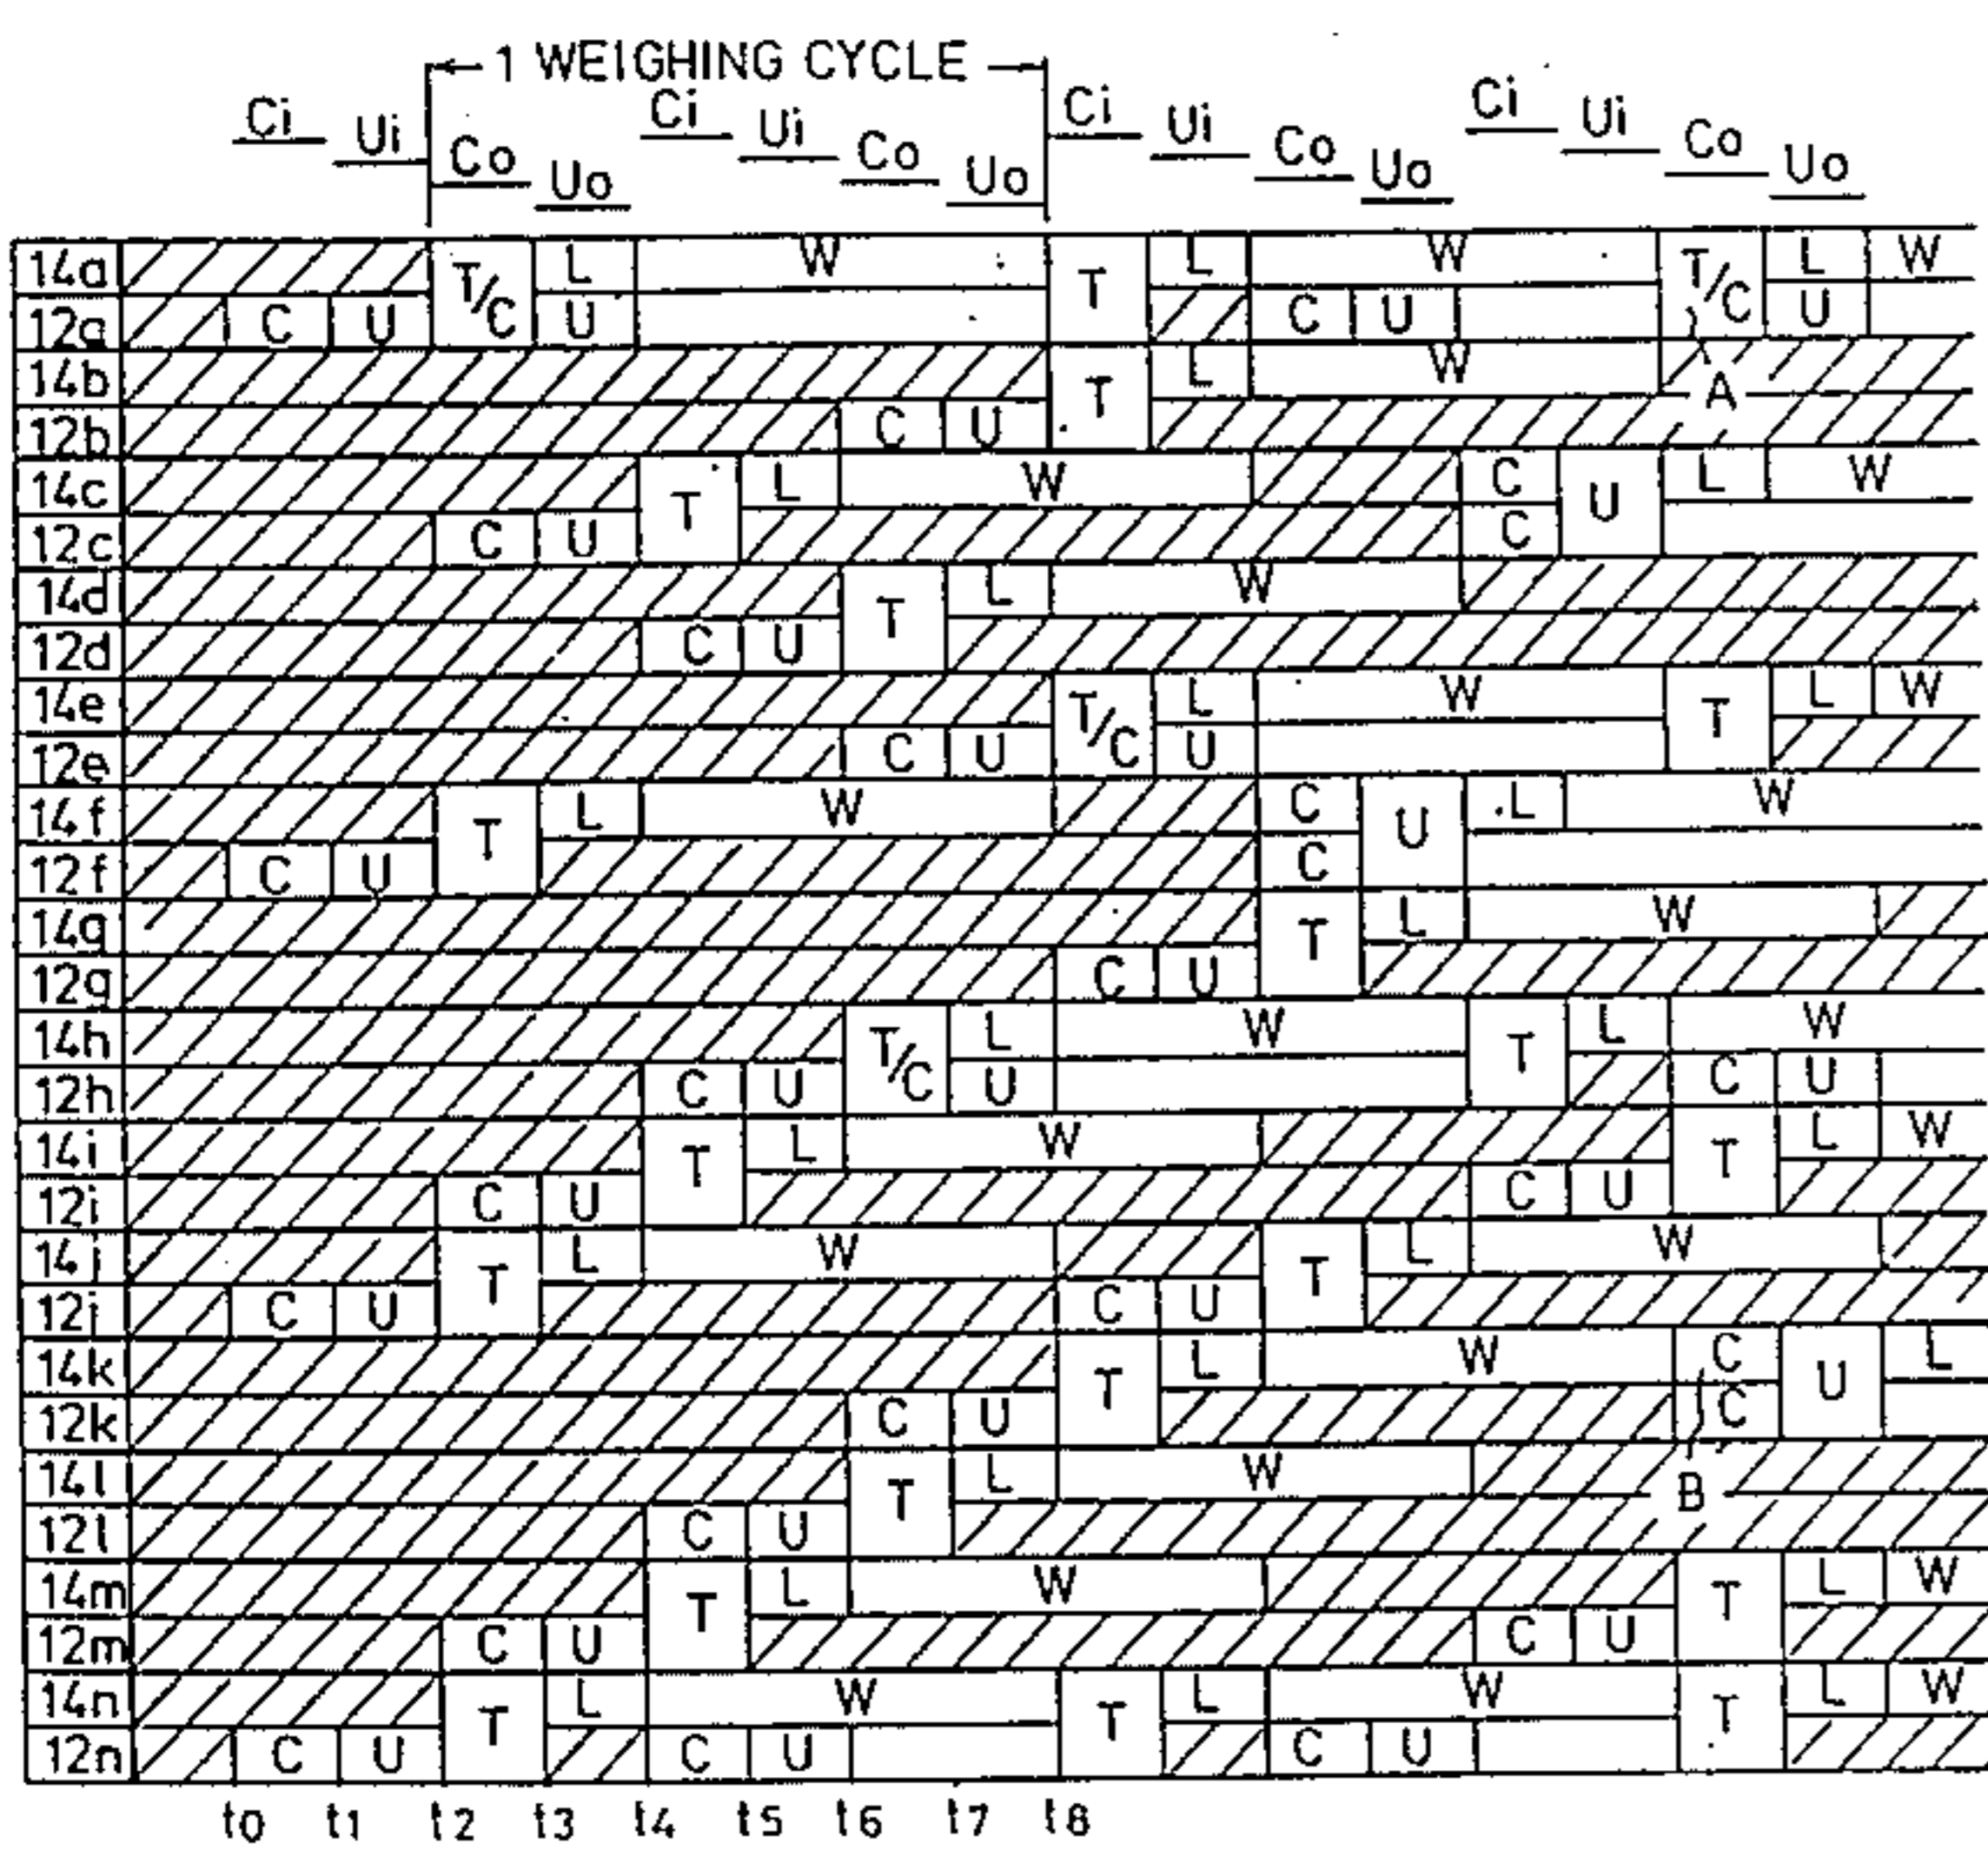 1 WEIGHING CYCLE
Ci Ui Co Uo Ci Ui Co Uo Ci Ui Co Uo Ci Ui Co Uo
14a T/C L W T L W T/C L W
12a C U U C U U
14b T L W A
12b C U
14c T L W C U L W
12c C U C
14d T L W
12d C U
14e T/C L W T L W
12e C U U
14f T L W C U L W
12f C U C
14g T L W
12g C U
14h T/C L W T L W
12h C U U C U
14i T L W T L W
12i C U C U
14j T L W T L W
12j C U C U
14k T L W C U L
12k C U C
14l T L W B
12l C U
14m T L W T L W
12m C U C U
14n T L W T L W T L W
12n C U C U C U
t0 t1 t2 t3 t4 t5 t6 t7 t8